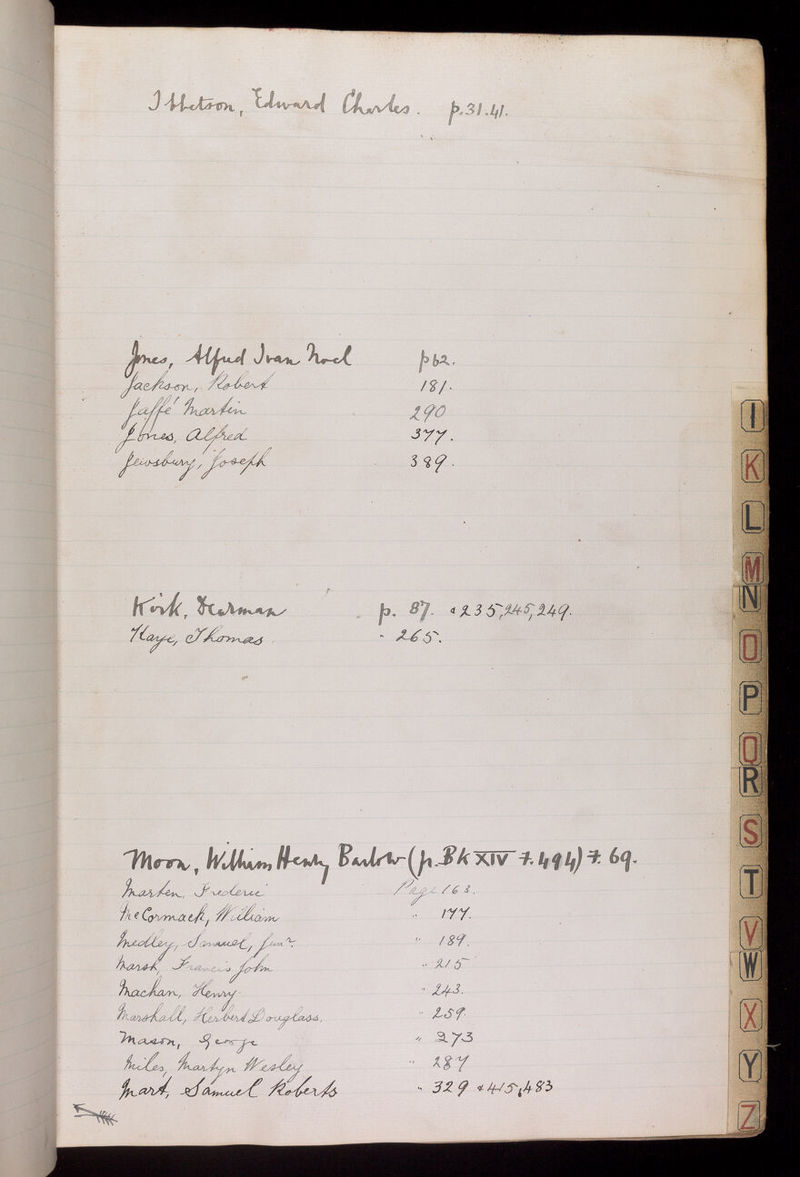 Ibbetson, Edward Charles. p.31.41.
Jones, Alfred Ivan Noel p 62.
Jackson, Robert 181.
Jaffé Martin 290
Jones, Alfred 377.
Jewsbury, Joseph 389.
Kirk, Dearman p. 87. & 235,245,249.
Kaye, Thomas " 265.
Moon, William Henry Barlow (p. Bk XIV f. 494) f. 69.
Marten, Frederic Page 163.
McCormack, William " 177.
Medley, Samuel, Junr. " 189.
Marsh, Francis John " 215
Machan, Henry " 243.
Marshall, Herbert Douglass. " 259.
Mason, George " 273
Miles, Martyn Wesley " 287
Mart, Samuel Roberts " 329 & 415,483
I
K
L
M
N
O
P
Q
R
S
T
V
W
X
Y
Z